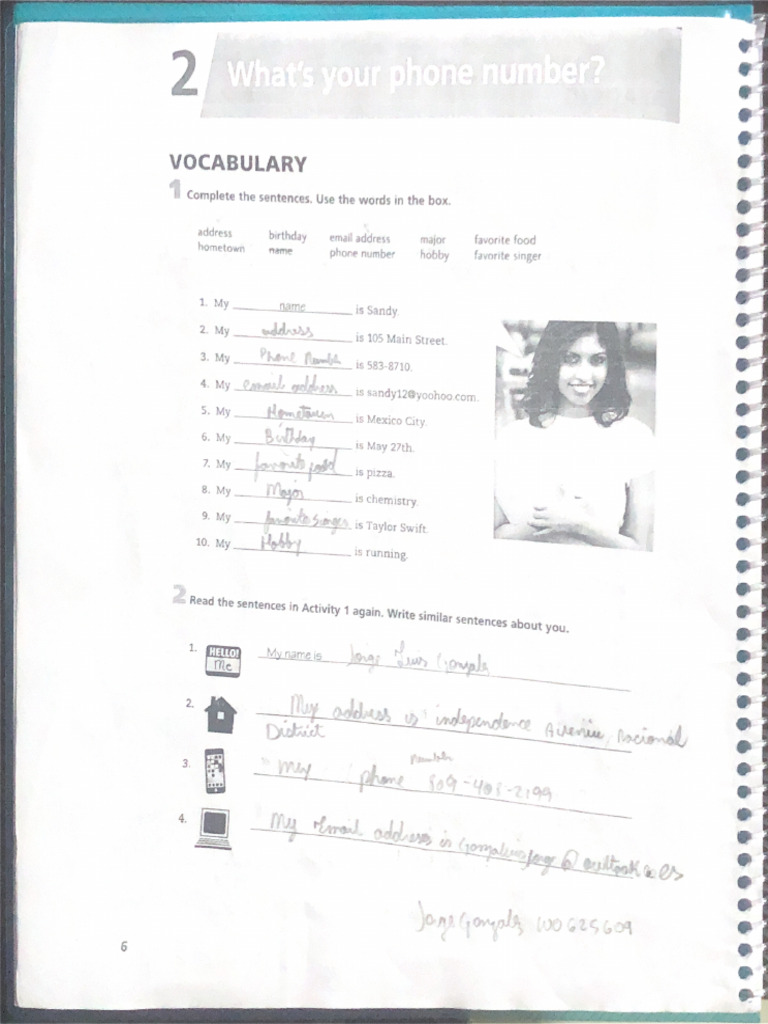 2 What's your phone number?
VOCABULARY
1 Complete the sentences. Use the words in the box.
address birthday email address major favorite food
hometown name phone number hobby favorite singer
1. My name is Sandy.
2. My address is 105 Main Street.
3. My Phone Number is 583-8710.
4. My email address is sandy12@yoohoo.com.
5. My Hometown is Mexico City.
6. My Birthday is May 27th.
7. My favorite food is pizza.
8. My Major is chemistry.
9. My favorite singer is Taylor Swift.
10. My Hobby is running.
2 Read the sentences in Activity 1 again. Write similar sentences about you.
1. HELLO! Me My name is Jorge Luis Gonzalz
2. My address is independence Avenue, nacional
District
number
3. my phone 809-408-2199
4. My Email address is @ outlook . es
Jorge Gonzalz 100625609
6